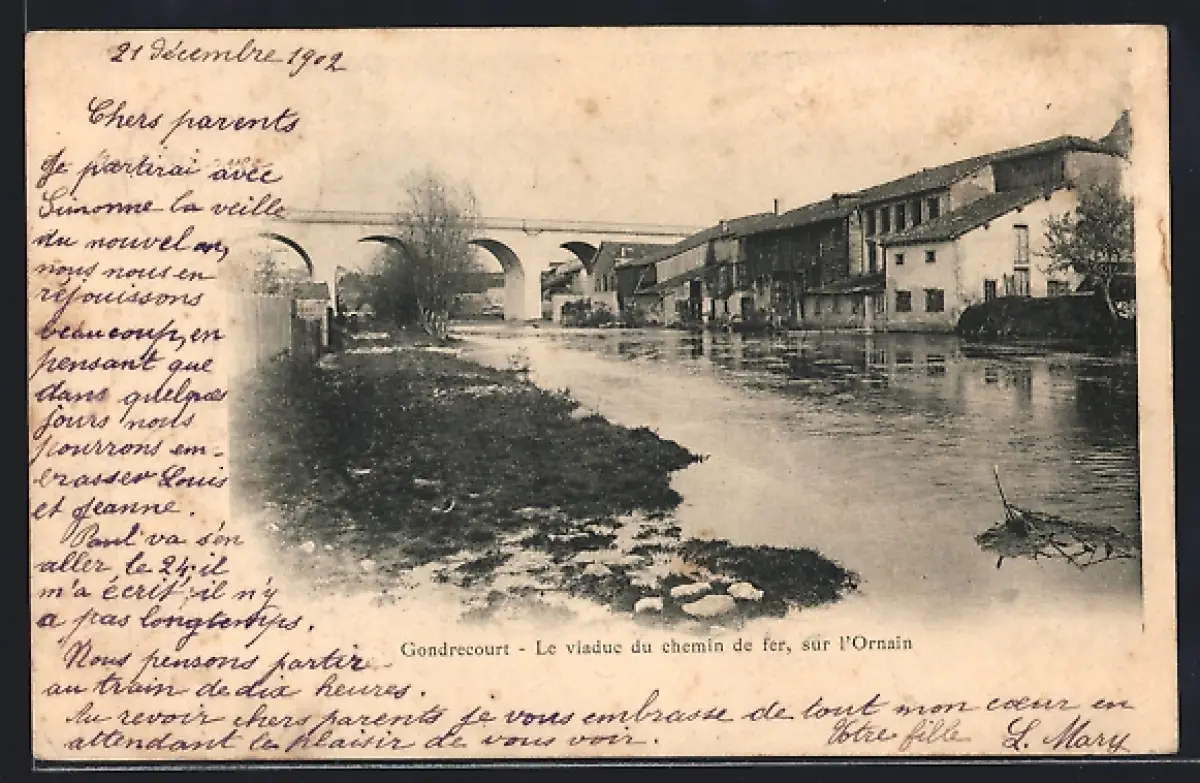 21 décembre 1902
Chers parents
Je partirai avec
Simonne la veille
du nouvel an,
nous nous en
réjouissons
beaucoup, en
pensant que
dans quelques
jours nous
pourrons em-
brasser Louis
et Jeanne.
Paul va s'en
aller le 24, il
m'a écrit; il n'y
a pas longtemps.
Nous pensons partir
au train de dix heures.
Au revoir chers parents je vous embrasse de tout mon cœur en
attendant le plaisir de vous voir.
Votre fille L. Mary
Gondrecourt - Le viaduc du chemin de fer, sur l'Ornain